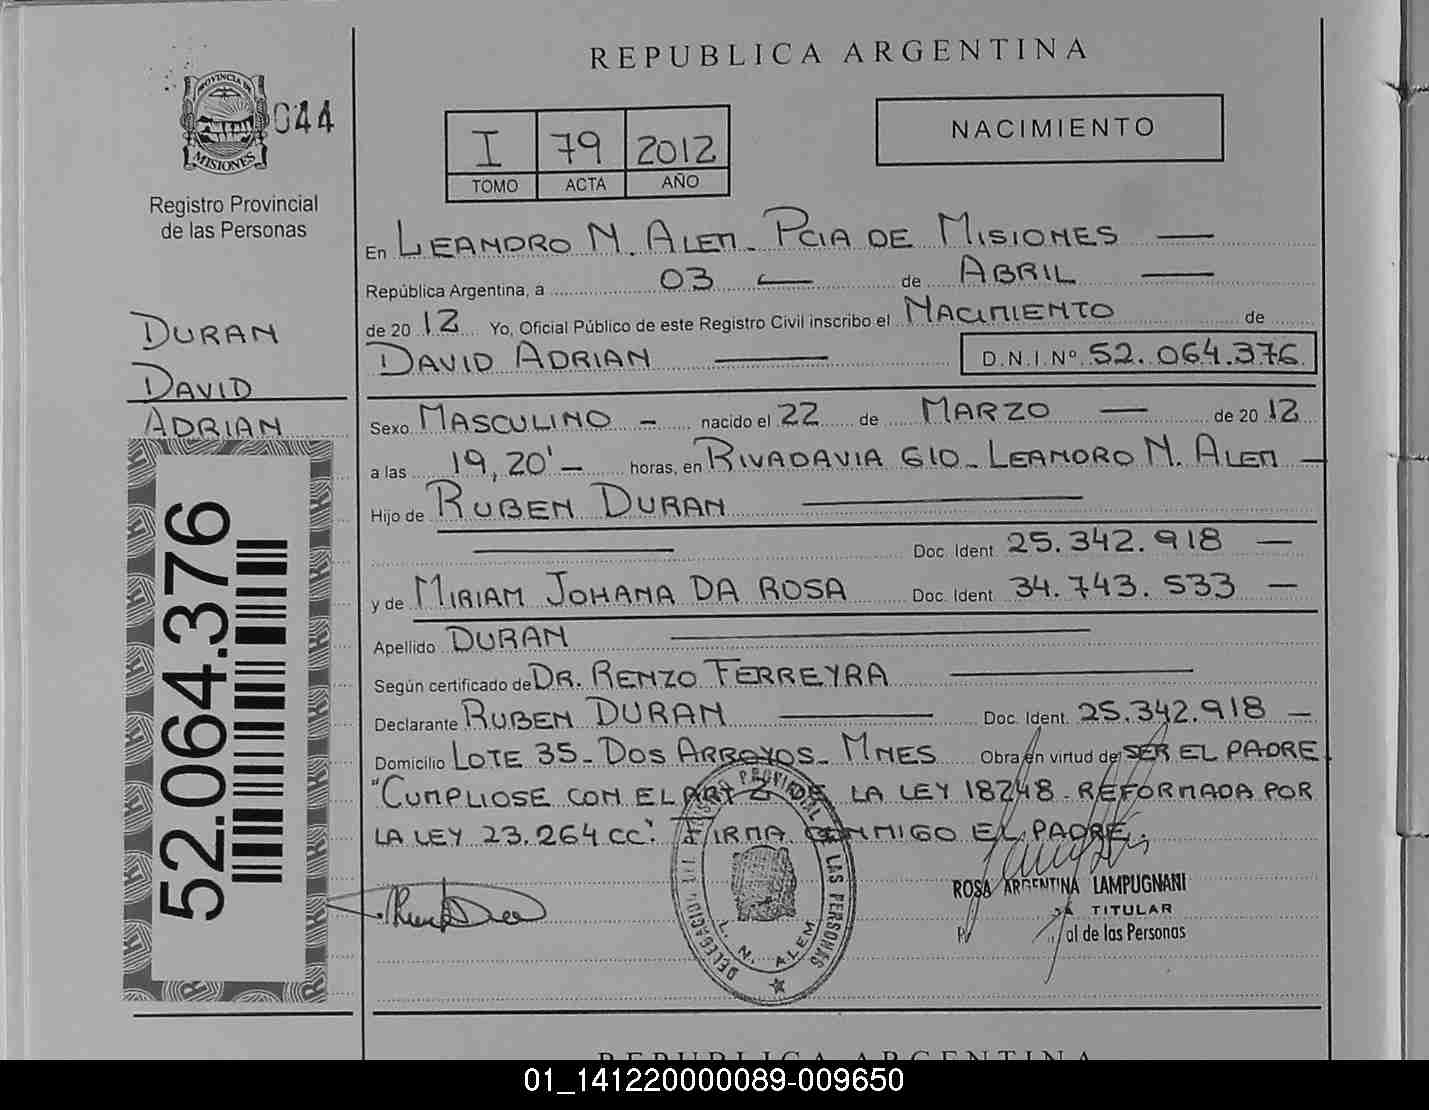 REPUBLICA ARGENTINA
PROVINCIA DE
MISIONES
044
Registro Provincial
de las Personas
I 79 2012
TOMO ACTA AÑO
NACIMIENTO
En LEANDRO N. ALEM - PCIA DE MISIONES —
República Argentina, a 03 — de ABRIL —
de 20 12 Yo, Oficial Público de este Registro Civil inscribo el NACIMIENTO de
DAVID ADRIAN — D.N.I.Nº 52.064.376
DURAN
DAVID
ADRIAN
Sexo MASCULINO - nacido el 22 de MARZO — de 20 12
a las 19,20'- horas, en RIVADAVIA 610 - LEANDRO N. ALEM -
Hijo de RUBEN DURAN —
— Doc. Ident. 25.342.918 —
y de MIRIAM JOHANA DA ROSA Doc. Ident. 34.743.533 —
Apellido DURAN —
Según certificado de DR. RENZO FERREYRA —
Declarante RUBEN DURAN — Doc. Ident. 25.342.918 —
Domicilio LOTE 35 - DOS ARROYOS - MNES Obra en virtud de SER EL PADRE
"CUMPLIOSE CON EL ART 2 DE LA LEY 18248 - REFORMADA POR
LA LEY 23.264 CC". FIRMA CONMIGO EL PADRE.
52.064.376
DE LAS PERSONAS
DELEGACION
L. N. ALEM
ROSA ARGENTINA LAMPUGNANI
TITULAR
de las Personas
REPUBLICA ARGENTINA
01_141220000089-009650